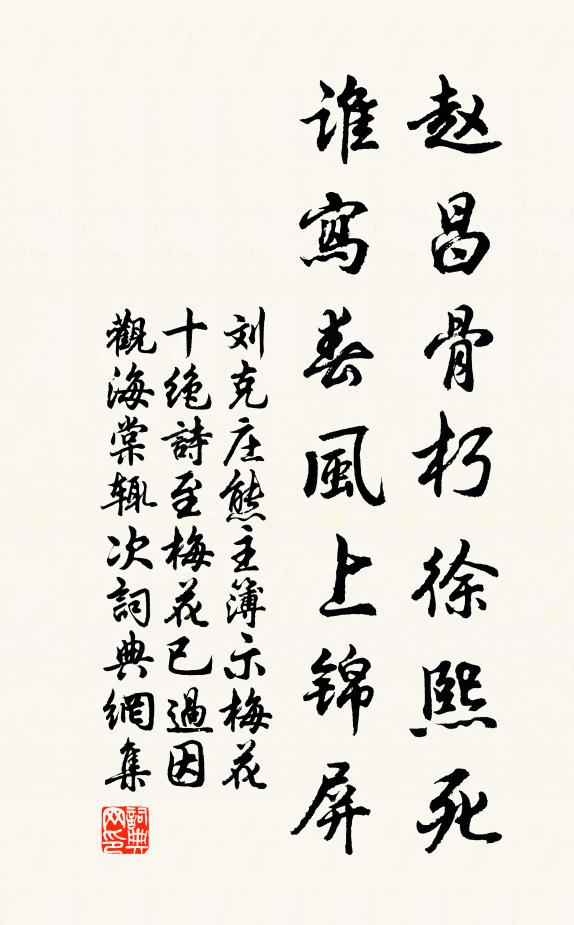 赵昌骨朽徐熙死
谁寫春風上锦屏
刘克庄熊主簿示梅花
十绝詩至梅花已過因
觀海棠辄次詞典網集
詞典
网印